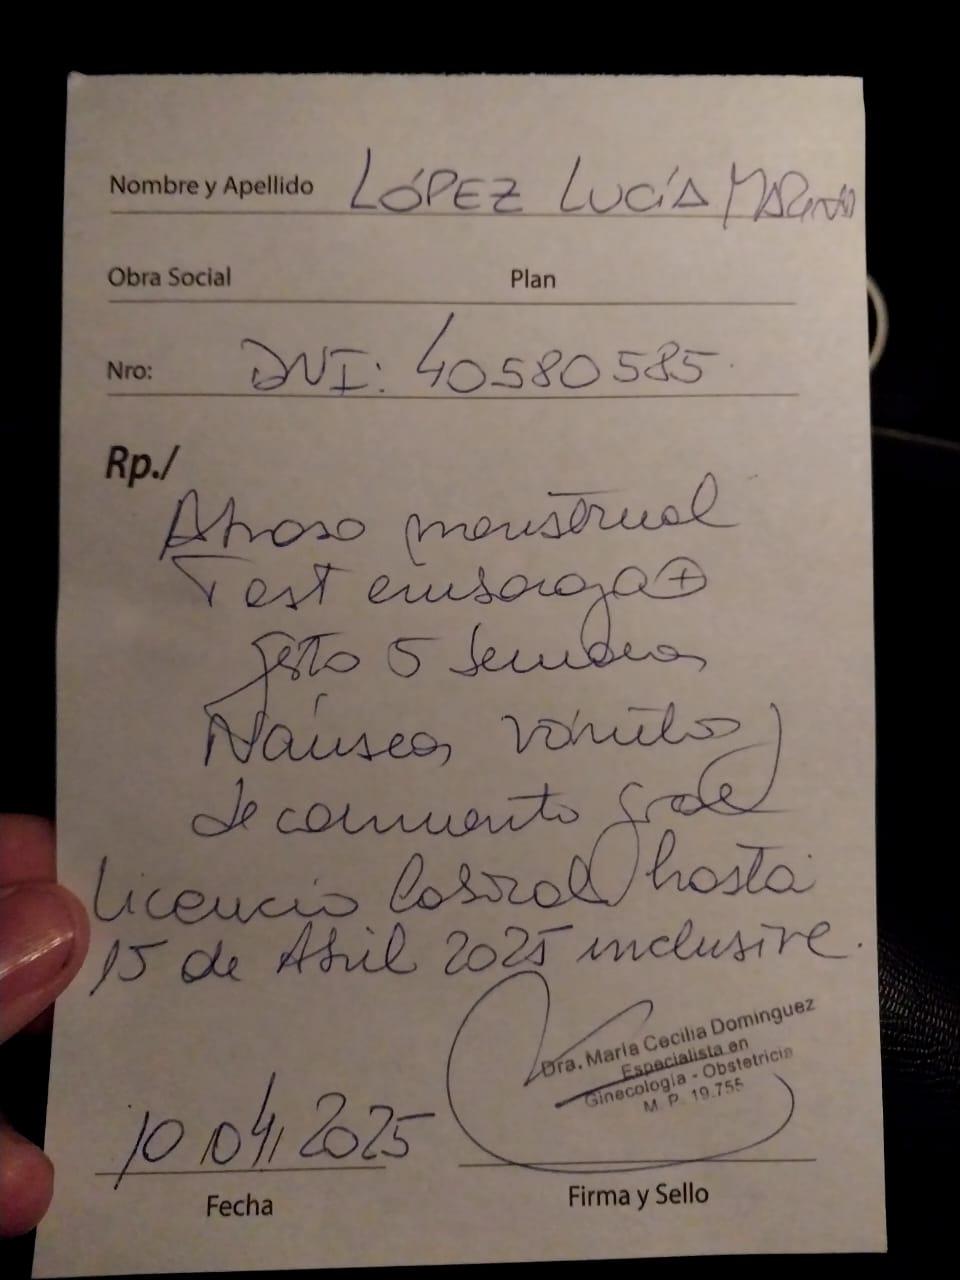 Nombre y Apellido LÓPEZ LUCÍA
Obra Social Plan
Nro: DNI: 40580585.
Rp./
Atraso menstrual
Test embarazo +
Gesta 5 semanas
Náuseas, vómitos
decaimiento gral
Licencia laboral hasta
15 de Abril 2025 inclusive.
Dra. María Cecilia Dominguez
Especialista en
Ginecología - Obstetricia
M. P. 19.755
10/04/2025
Fecha Firma y Sello